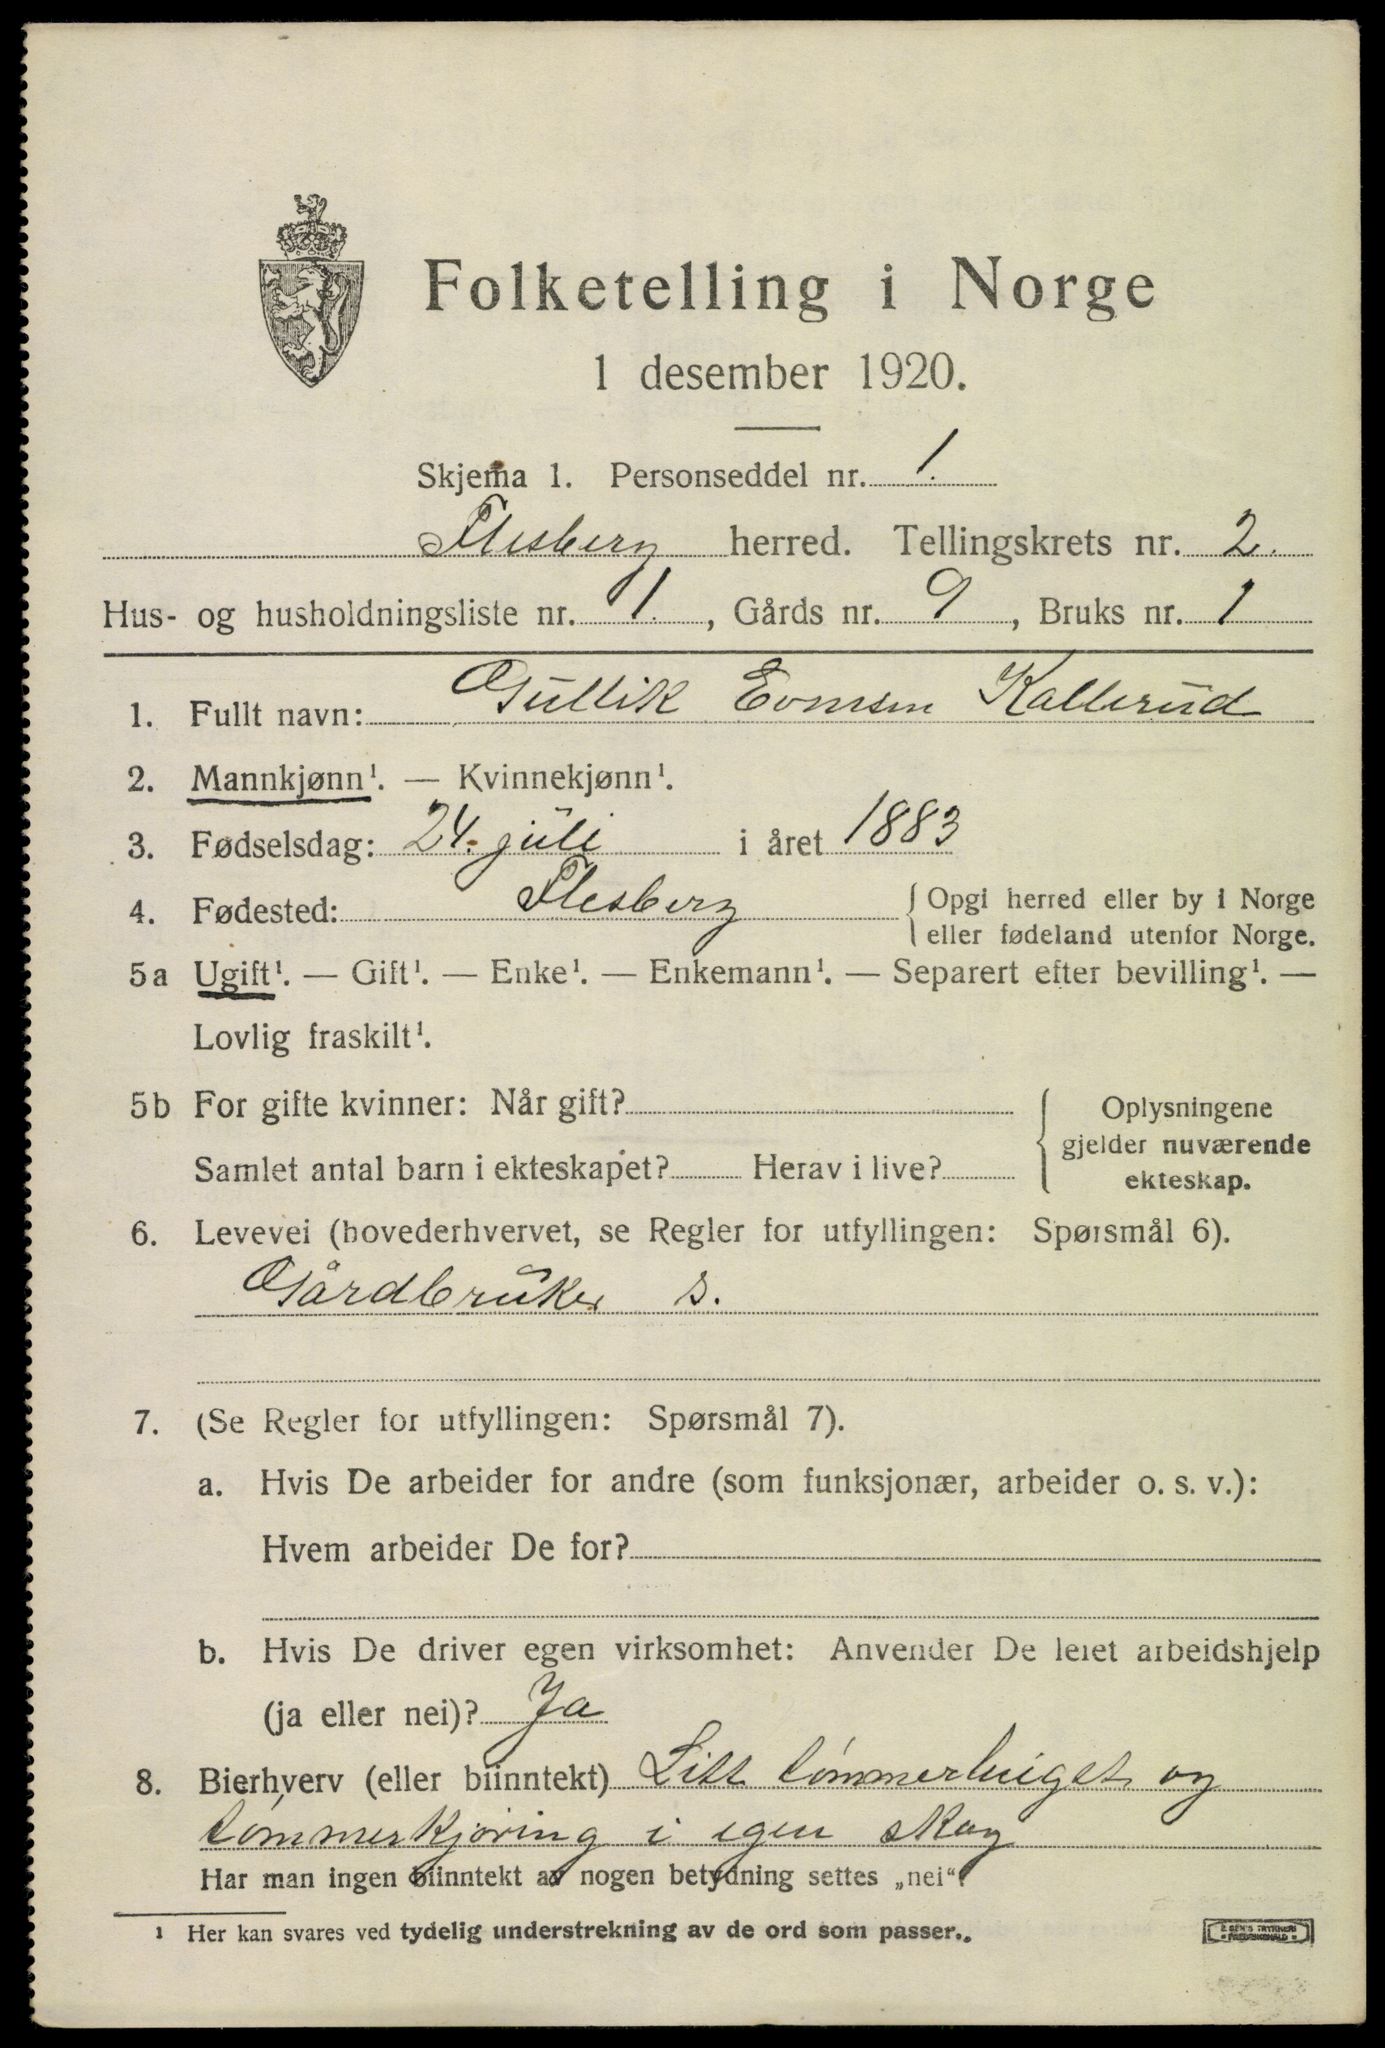 Folketelling i Norge
1 desember 1920.
Skjema 1. Personseddel nr. 1.
Flesberg herred. Tellingskrets nr. 2.
Hus- og husholdningsliste nr. 1., Gårds nr. 9, Bruks nr. 1
1. Fullt navn: Gullik Evensen Kallerud
2. Mannkjønn¹. — Kvinnekjønn¹.
3. Fødselsdag: 24. juli i året 1883
4. Fødested: Flesberg { Opgi herred eller by i Norge
eller fødeland utenfor Norge.
5a Ugift¹. — Gift¹. — Enke¹. — Enkemann¹. — Separert efter bevilling¹. —
Lovlig fraskilt¹.
5b For gifte kvinner: Når gift? { Oplysningene
gjelder nuværende
Samlet antal barn i ekteskapet? Herav i live?
ekteskap.
6. Levevei (hovederhvervet, se Regler for utfyllingen: Spørsmål 6).
Gårdbruker s.
7. (Se Regler for utfyllingen: Spørsmål 7).
a. Hvis De arbeider for andre (som funksjonær, arbeider o. s. v.):
Hvem arbeider De for?
b. Hvis De driver egen virksomhet: Anvender De leiet arbeidshjelp
(ja eller nei)? Ja
8. Bierhverv (eller biinntekt) Litt tømmerhugst og
tømmerkjøring i egen skog
Har man ingen biinntekt av nogen betydning settes „nei“.
¹ Her kan svares ved tydelig understrekning av de ord som passer.